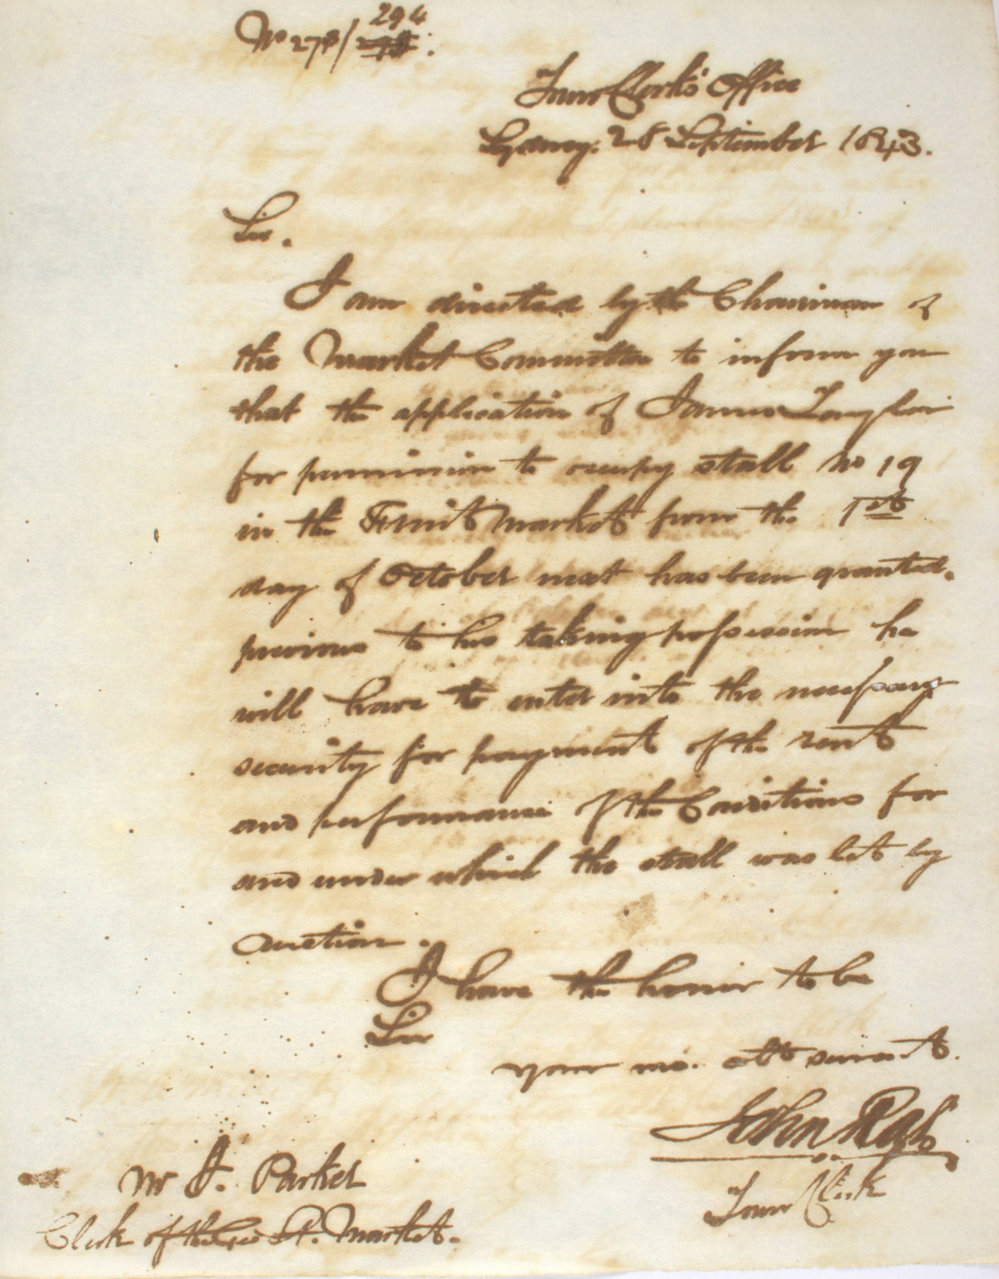 No 278/294
Town Clerk's Office
Sydney. 28 September 1843.
Sir.
I am directed by the Chairman of
the Market Committee to inform you
that the application of James Taylor
for permission to occupy stall No 19
in the Fruit Market from the 1st
day of October next has been granted.
previous to his taking possession he
will have to enter into the necessary
security for payment of the rent
and performance of the Conditions for
and under which the stall was let by
auction.
I have the honor to be
Sir
your mo. obt servant.
John Rae
Town Clerk
Mr J. Parker
Clerk of the Geo St. Market.